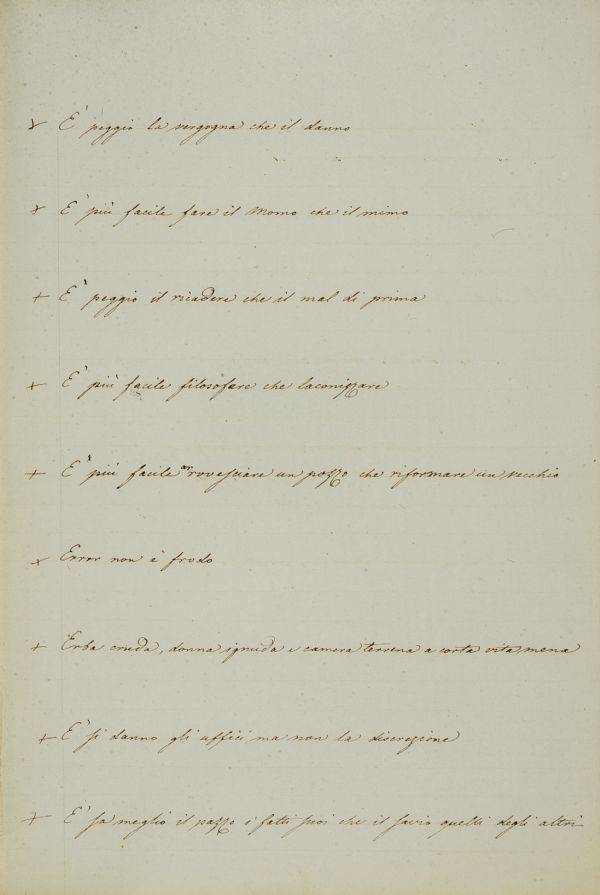 × E' peggio la vergogna che il danno
× E' più facile fare il Momo che il mimo
+ E' peggio il ricadere che il mal di prima
+ E' più facile filosofare che laconizzare
+ E' più facile arrovesciare un pozzo che riformare un vecchio
× Error non è frodo
+ Erba cruda, donna ignuda e camera terrena a corta vita mena
+ E' si danno gli uffici ma non la discrezione
+ E' sa meglio il pazzo i fatti suoi che il savio quelli degli altri